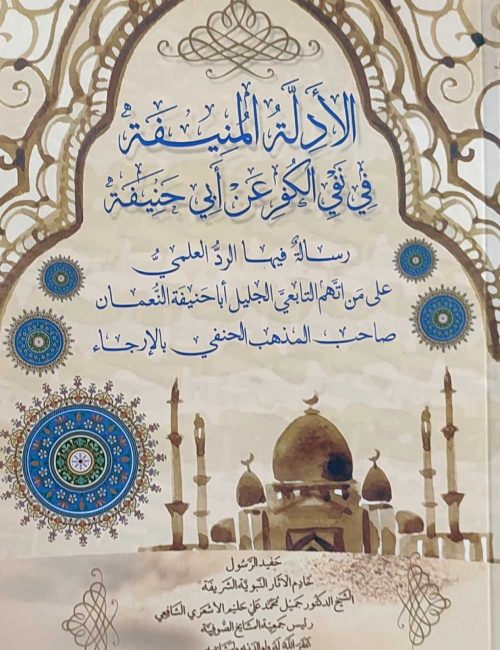 الأَدِلَّةُ المُنِيفَة
فِي نَفْيِ الكُفْرِ عَنْ أَبِي حَنِيفَة
رسالةٌ فيها الردُّ العلميُّ
على مَن اتَّهم التابعيَّ الجليل أبا حنيفة النُّعمان
صاحب المذهب الحنفي بالإرجاء
حَفيد الرّسول
خَادِم الآثار النَّبَويَّة الشَّريفَة
الشيخ الدكتور جميل محمد علي حليم الأشعري الشافعي
رئيس جمعية المشايخ الصوفية
غفر الله له ولوالديه ولمشايخه